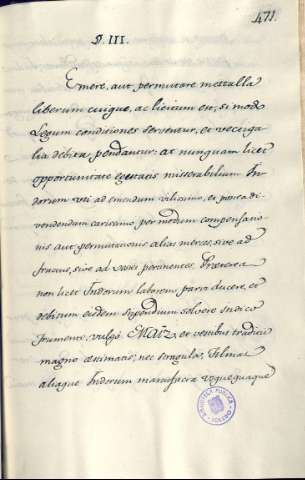 471.
§. III.
Emere, aut permutare mettalla
liberum cuique, ac licitum est, si modo
Legum conditiones serventur, et vectiga-
lia debita pendantur: at nunquam licet
opportunitate egestatis misserabilium In-
dorum uti ad emendum vilissime, et postea di-
vendendum carissime per modum compensatio-
nis aut permutationis alias merces, sive ad
fructus, sive ad vestes pertinentes. Præterea
non licet Indorum laborem, parvo ducere, et
debitum eisdem stipendium solvere Indico
frumento, vulgo Maiz, et vestibus traditis
magno æstimatis; nec singulas, Tilmas
aliaque Indorum manufacta